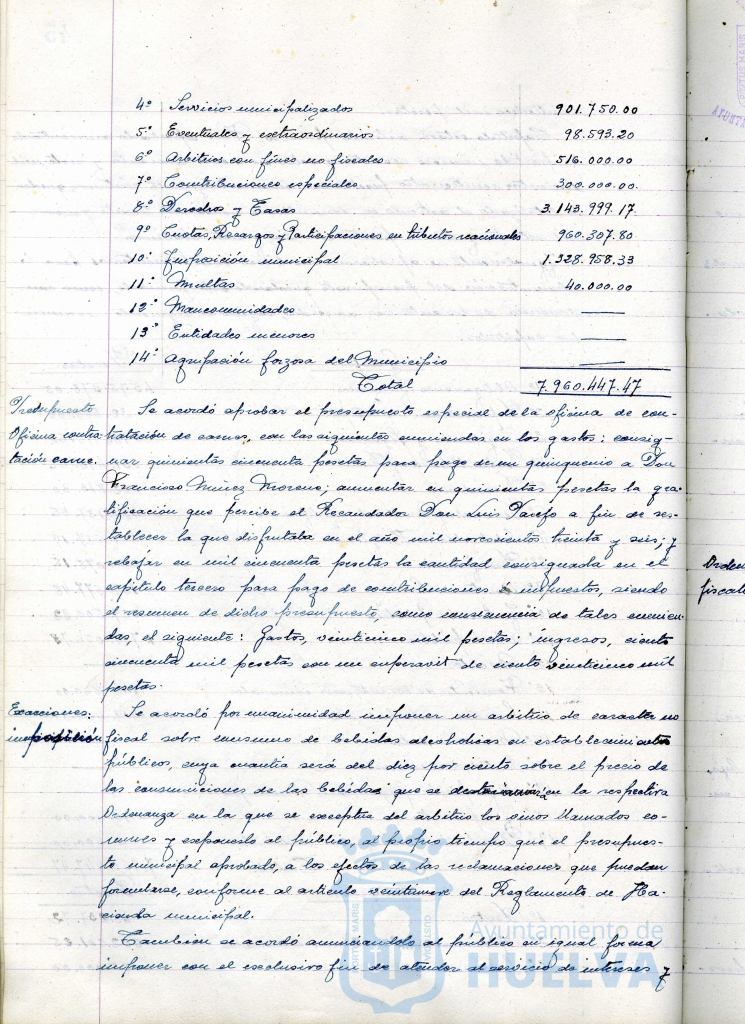 4º Servicios municipalizados 901.750.00
5º Eventuales y extraordinarios 98.593.20
6º Arbitrios con fines no fiscales 516.000.00
7º Contribuciones especiales 300.000.00
8º Derechos y Tasas 3.143.999.17
9º Cuotas, Recargos y Participaciones en tributos nacionales 960.307.80
10º Imposición municipal 1.328.958.33
11º Multas 40.000.00
12º Mancomunidades ——
13º Entidades menores ——
14º Agrupación forzosa del Municipio ——
Total 7.960.447.47
Presupuesto Se acordó aprobar el presupuesto especial de la oficina de con-
Oficina contra- tratación de carnes, con las siguientes enmiendas en los gastos: consig-
tación carne. nar quinientas cincuenta pesetas para pago de un quinquenio a Don
Francisco Núñez Moreno; aumentar en quinientas pesetas la gra-
tificación que percibe el Recaudador Don Luis a fin de res-
tablecer la que disfrutaba en el año mil novecientos treinta y seis; y
rebajar en mil cincuenta pesetas la cantidad consignada en el
capítulo tercero para pago de contribuciones é impuestos, siendo
el resumen de dicho presupuesto, como consecuencia de tales enmien-
das, el siguiente: Gastos, veinticinco mil pesetas; ingresos, ciento
cincuenta mil pesetas con un superavit de ciento veinticinco mil
pesetas.
Exacciones: Se acordó por unanimidad imponer un arbitrio de caracter no
imposición fiscal sobre consumo de bebidas alcoholicas en establecimientos
públicos, cuya cuantía será del diez por ciento sobre el precio de
las consumiciones de las bebidas que se en la respectiva
Ordenanza en la que se exceptua del arbitrio los vinos llamados co-
munes y exponerlo al público, al propio tiempo que el presupues-
to municipal aprobado, a los efectos de las reclamaciones que puedan
formularse, conforme al artículo veintinueve del Reglamento de Ha-
cienda municipal.
Tambien se acordó anunciandolo al público en igual forma
imponer con el exclusivo fin de atender al servicio de intereses y
Orden
fiscal
Ayuntamiento de
HUELVA